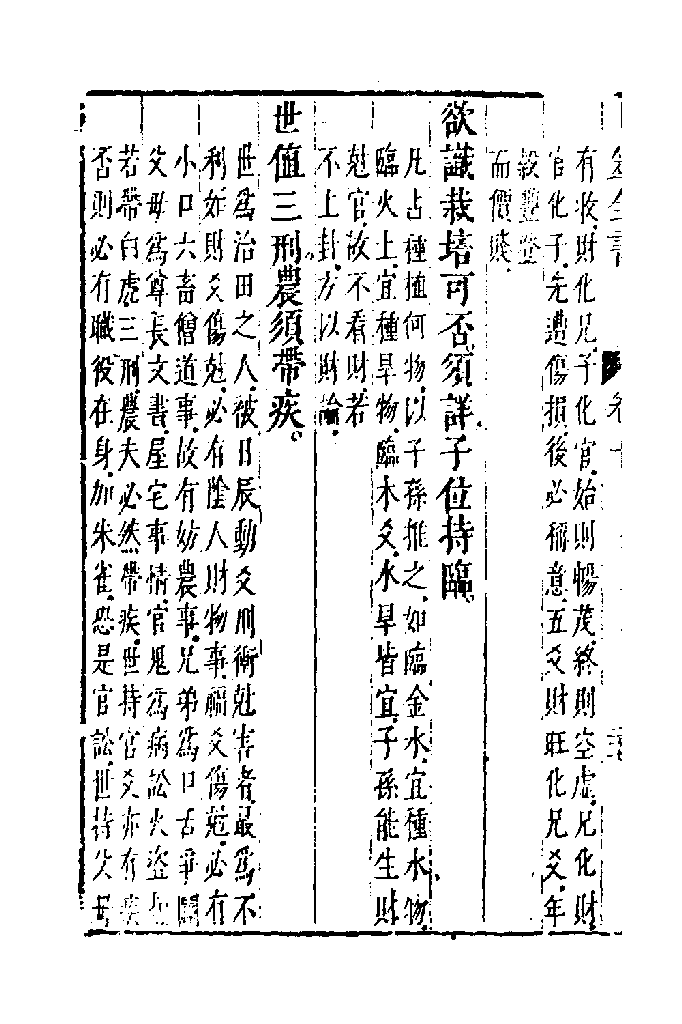 有收財化兄子化官始則暢茂終則空虛兄化財
官化子先遭傷損後必稱意五爻財旺化兄爻年
穀豐登
而價賤
欲識栽培可否須詳子位持臨
凡占種植何物以子孫推之如臨金水宜種水物
臨火土宜種旱物臨木爻水旱皆宜子孫能生財
尅官故不看財若
不上卦方以財論
世值三刑農須帶疾
世為治田之人被日辰動爻刑衝尅害者最為不
利如財爻傷尅必有陰人財物事福爻傷尅必有
小口六畜僧道事故有妨農事兄弟為口舌爭鬬
父母為尊長文書屋宅事情官鬼為病訟火盜
若帶白虎三刑農夫必然帶疾世持官爻亦有疾
否則必有職役在身加朱雀恐是官訟世持父母